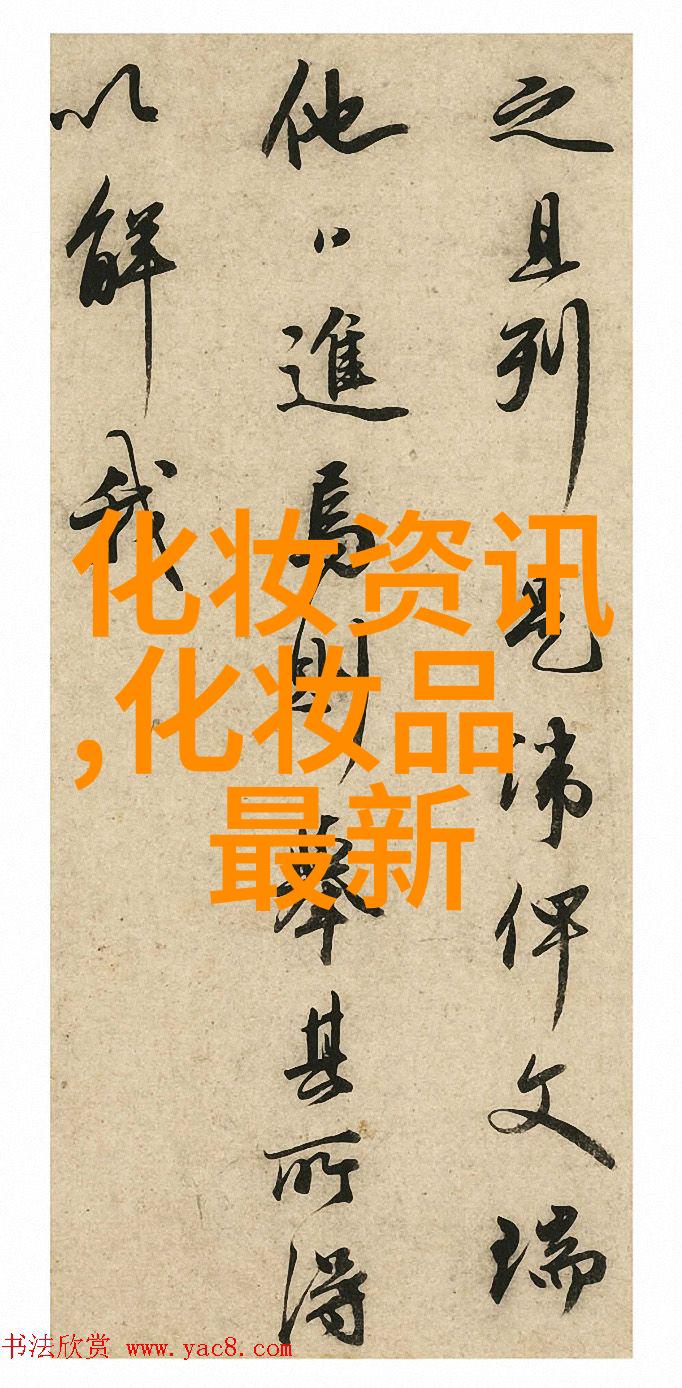 之且列
是讳俾文瑞
他日進焉則舉其所得
以解我
化妆资讯
,化妆品
最新
书法欣赏 www.yac8.com